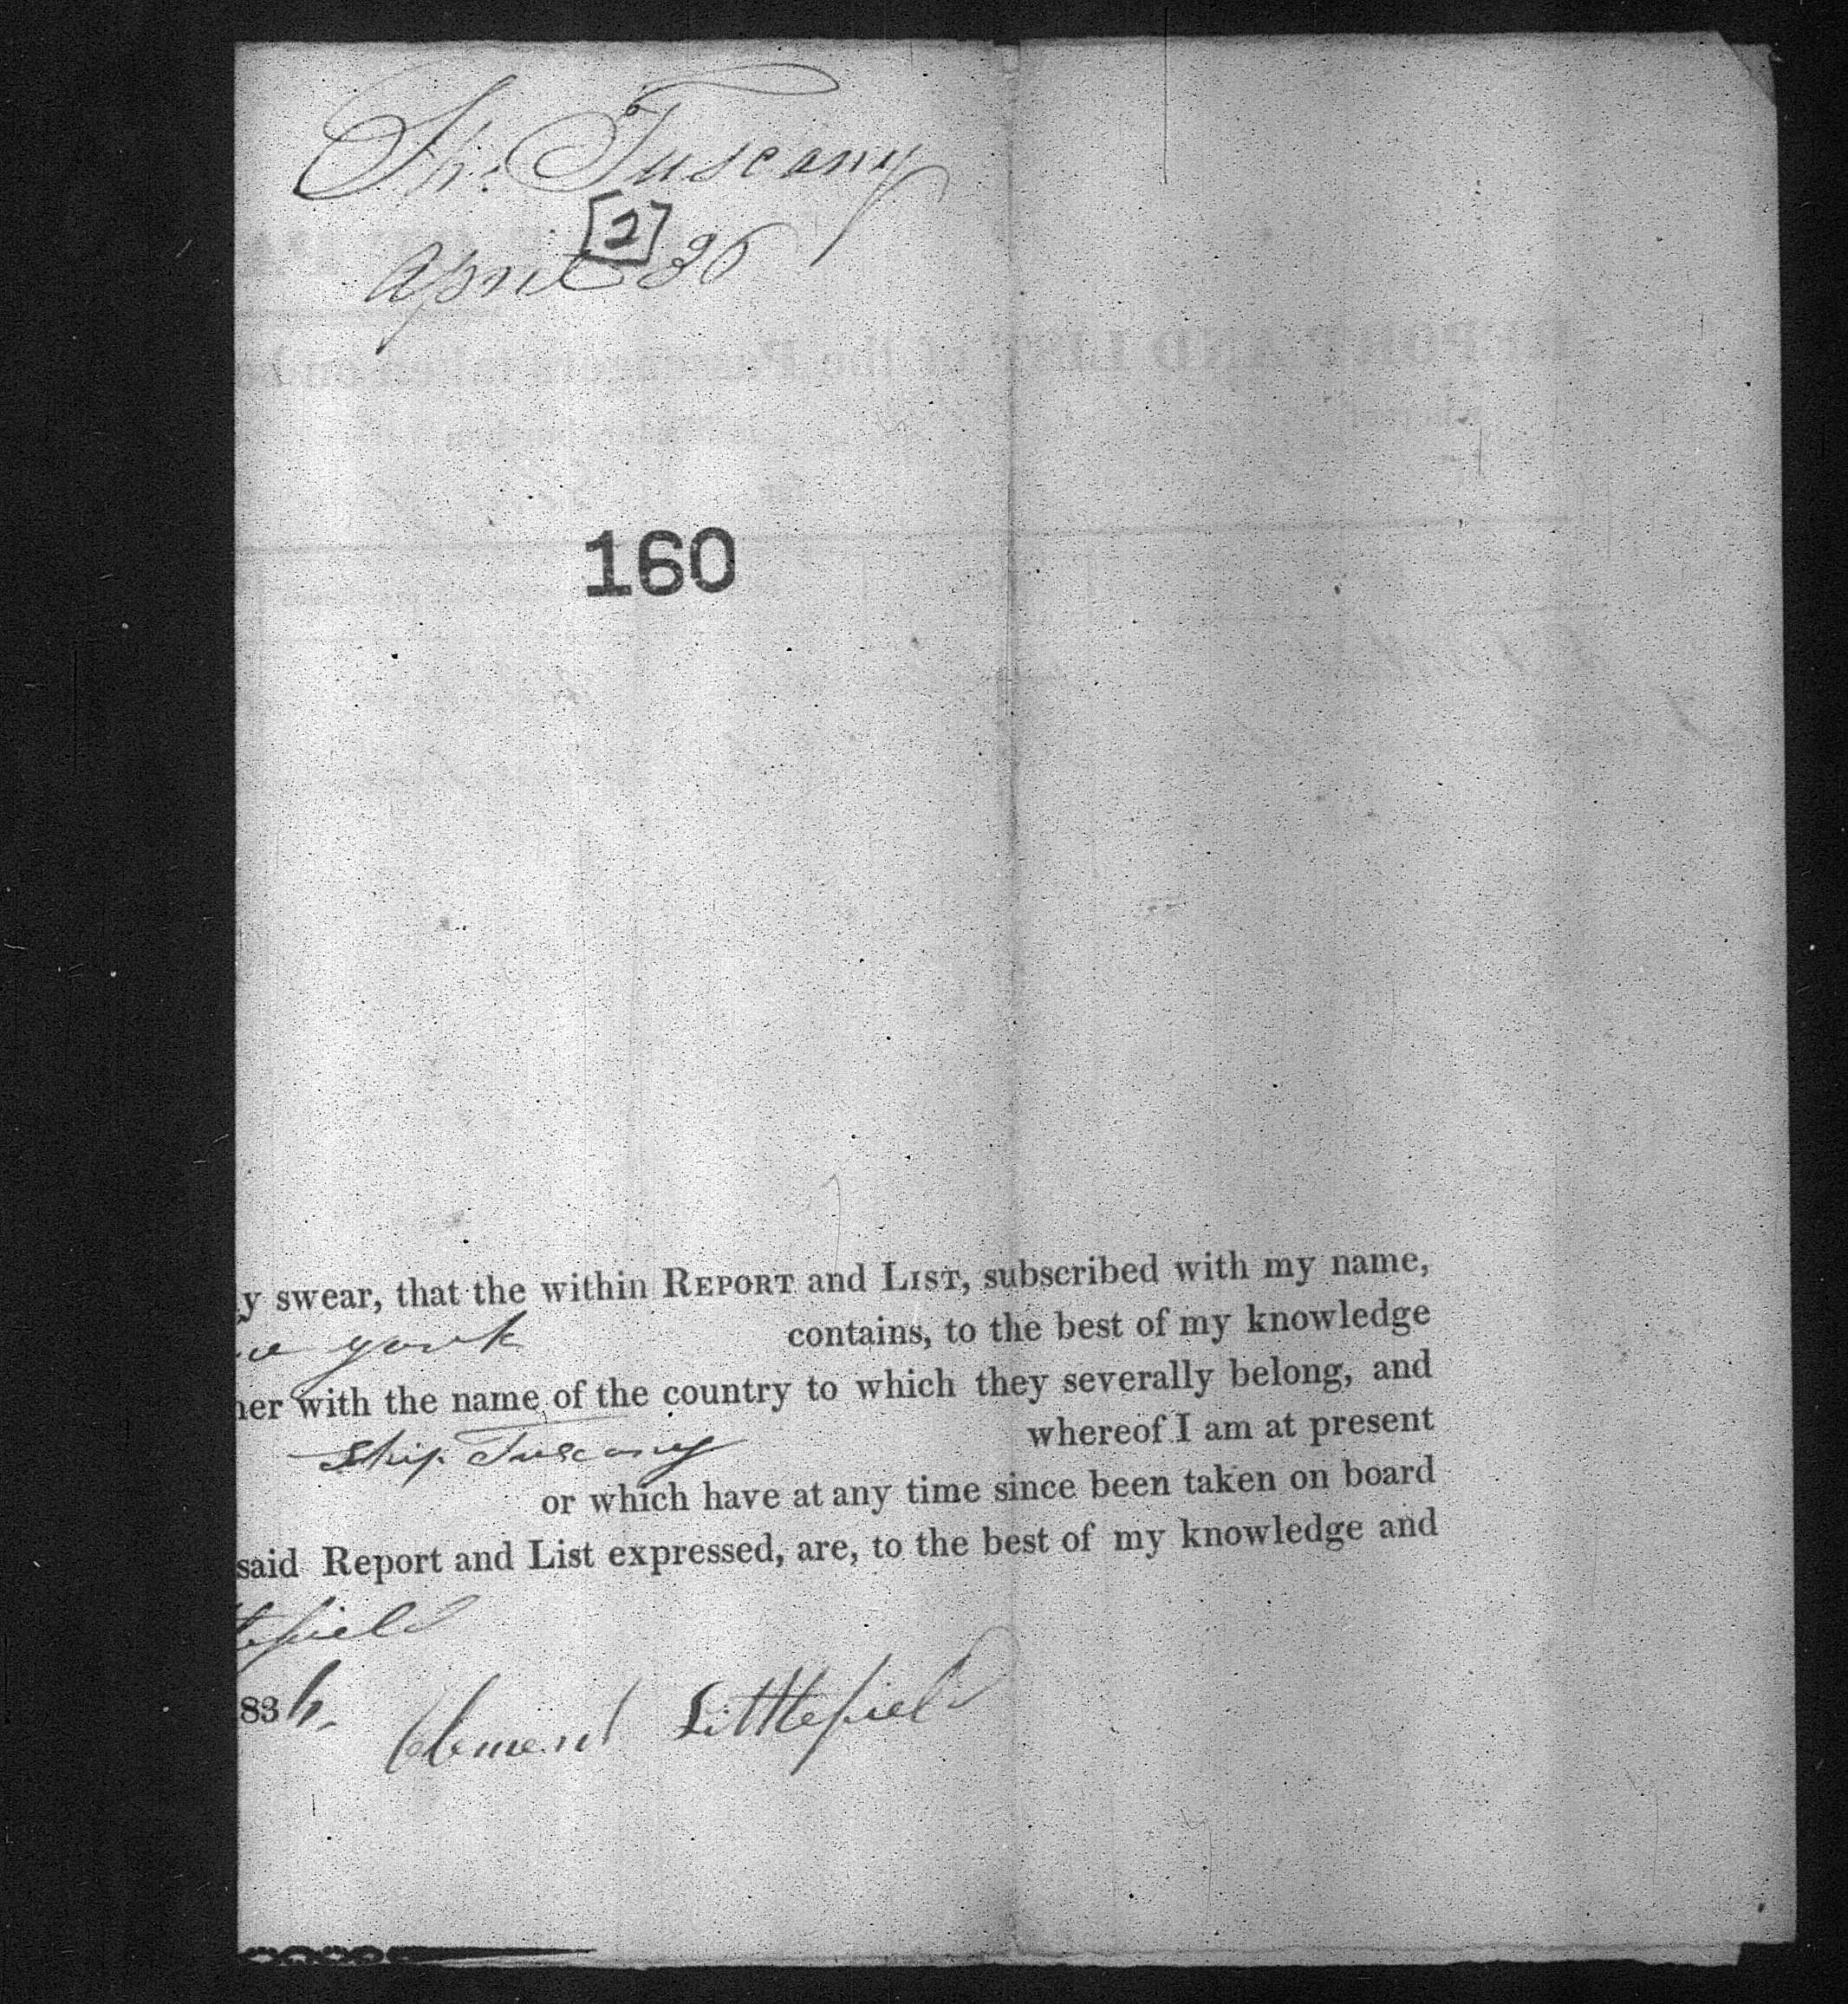 Sh. Tuscany
[2]
April 26
160
y swear, that the within REPORT and LIST, subscribed with my name,
york contains, to the best of my knowledge
her with the name of the country to which they severally belong, and
Ship Tuscany whereof I am at present
or which have at any time since been taken on board
said Report and List expressed, are, to the best of my knowledge and
tefield
836. Clement Littlefield